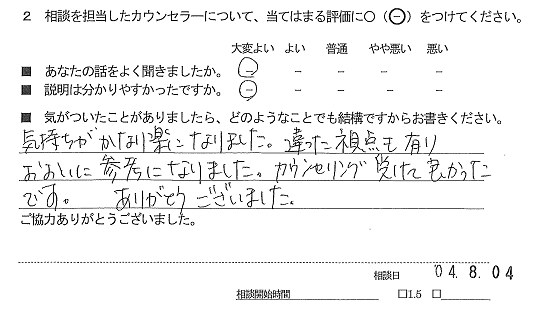 2 相談を担当したカウンセラーについて、当てはまる評価に○(⊖)をつけてください。
大変よい よい 普通 やや悪い 悪い
■ あなたの話をよく聞きましたか。 − − − − −
■ 説明は分かりやすかったですか。 − − − − −
■ 気がついたことがありましたら、どのようなことでも結構ですからお書きください。
気持ちがかなり楽になりました。違った視点も有り
おおいに参考になりました。カウンセリング受けて良かった
です。 ありがとうございました。
ご協力ありがとうございました。
相談日 '04.8.04
相談開始時間 □1.5 □